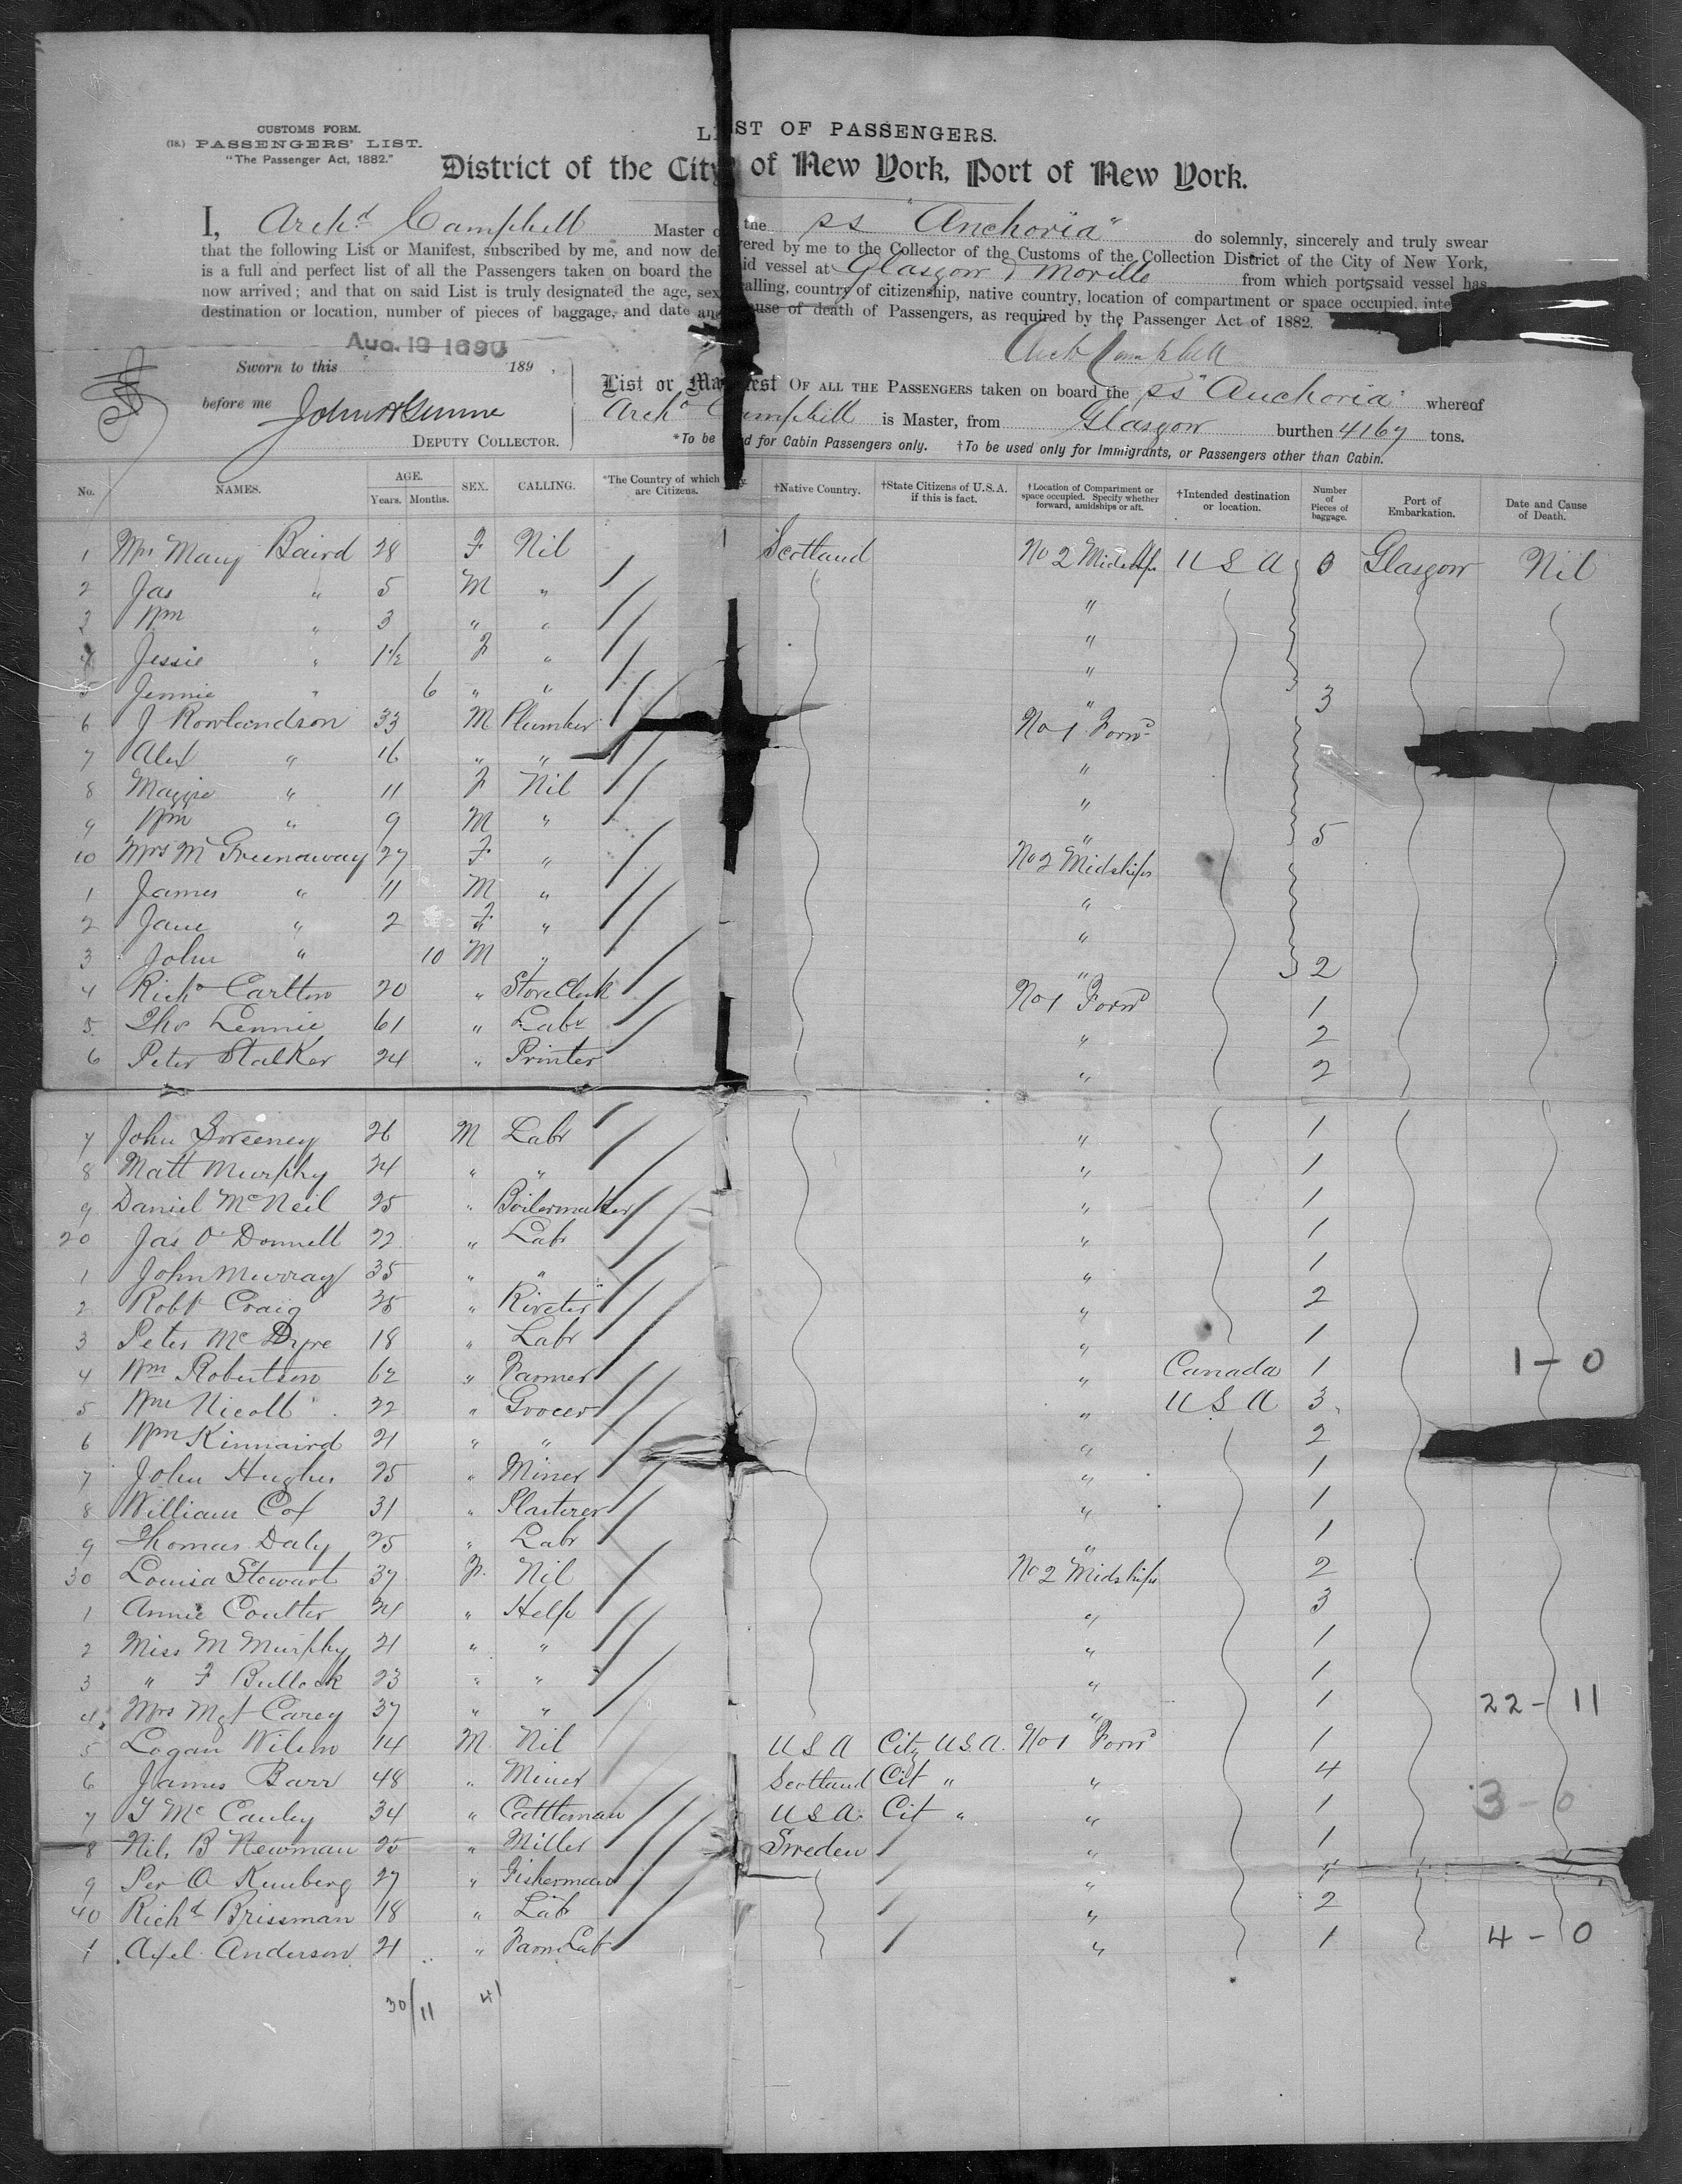 CUSTOMS FORM.
(18.) PASSENGERS' LIST.
"The Passenger Act, 1882."
LIST OF PASSENGERS.
District of the City of New York, Port of New York.
I, Archd Campbell Master of the SS "Anchoria" do solemnly, sincerely and truly swear
that the following List or Manifest, subscribed by me, and now delivered by me to the Collector of the Customs of the Collection District of the City of New York,
is a full and perfect list of all the Passengers taken on board the said vessel at Glasgow & Moville from which ports said vessel has
now arrived; and that on said List is truly designated the age, sex, calling, country of citizenship, native country, location of compartment or space occupied, inte
destination or location, number of pieces of baggage, and date and cause of death of Passengers, as required by the Passenger Act of 1882.
Arch Campbell
Sworn to this Aug. 19 1890 189 .
before me
DEPUTY COLLECTOR.
List or Manifest OF ALL THE PASSENGERS taken on board the SS "Anchoria" whereof
Archd Campbell is Master, from Glasgow burthen 4167 tons.
*To be used for Cabin Passengers only. †To be used only for Immigrants, or Passengers other than Cabin.
No. NAMES. AGE. Years. Months. SEX. CALLING. *The Country of which they are Citizens. †Native Country. †State Citizens of U.S.A. if this is fact. †Location of Compartment or space occupied. Specify whether forward, amidships or aft. †Intended destination or location. Number of Pieces of baggage. Port of Embarkation. Date and Cause of Death.
1 Mrs Mary Baird 28 F Nil Scotland No 2 Midships U S A Glasgow Nil
2 Jas " 5 M " "
3 Wm " 3 " " "
4 Jessie " 1½ F " "
5 Jennie " 6 " " " 3
6 J Rowlandson 33 M Plumber No 1 Forwd
7 Alex " 16 " " "
8 Maggie " 11 F Nil "
9 Wm " 9 M " " 5
10 Mrs M Greenaway 27 F " No 2 Midships
1 James " 11 M " "
2 Jane " 2 F " "
3 John " 10 M " " 2
4 Richd Carlton 20 " Store Clerk No 1 Forwd 1
5 Thos Lennie 61 " Labr " 2
6 Peter Stalker 24 " Printer " 2
7 John Sweeney 26 M Labr " 1
8 Matt Murphy 24 " " " 1
9 Daniel McNeil 25 " Boilermaker " 1
20 Jas O'Donnell 22 " Labr " 1
1 John Murray 35 " " " 1
2 Robt Craig 25 " Riveter " 2
3 Peter McDyre 18 " Labr " 1
4 Wm Robertson 62 " Farmer " Canada 1 1 - 0
5 Wm Nicoll 22 " Grocer " U S A 3
6 Wm Kinnaird 21 " " " 2
7 John Hughes 25 " Miner " 1
8 William Cox 31 " Plasterer " 1
9 Thomas Daly 25 " Labr " 1
30 Louisa Stewart 37 F. Nil No 2 Midships 2
1 Annie Coulter 24 " Help " 3
2 Miss M Murphy 21 " " " 1
3 " F Bullock 23 " " " 1
4 Mrs Mgt Carey 37 " " " 1 22 - 11
5 Logan Wilson 14 M. Nil U S A City U.S.A. No 1 Forwd 1
6 James Barr 48 " Miner Scotland Cit " " 4
7 T McCauley 34 " Cattleman U S A. Cit " " 1 3 - 0
8 Nils B Newman 25 " Miller Sweden " 1
9 Per O Kunberg 27 " Fisherman "
40 Richd Brissman 18 " Labr " 2
1 Axel Anderson 21 " Farm Labr " 1 4 - 0
30/11 41